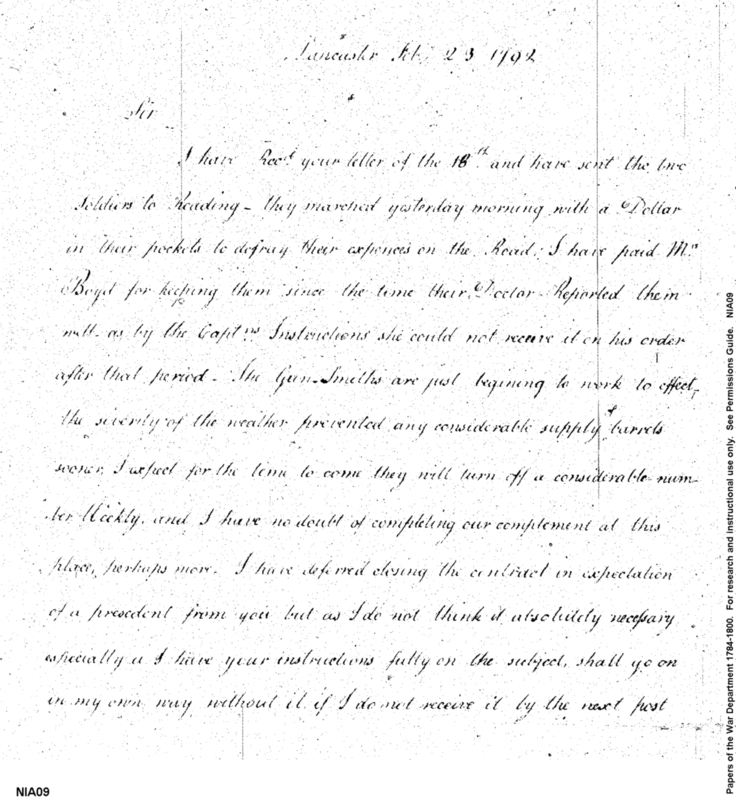 Lancaster Feb. 23 1792
Sir
I have Recd. your letter of the 18th. and have sent the two
Soldiers to Reading - they marched yesterday morning with a Dollar
in their pockets to defray their expences on the Road; I have paid Mrs
Boyd for keeping them since the time their Doctor Reported them
well, as by the Captns Instructions she could not receive it on his order
after that period - The Gun-Smiths are just begining to work to effect,
the siverity of the weather prevented any considerable supply of barrels
sooner, I expect for the time to come they will turn off a considerable num-
ber Weekly, and I have no doubt of completing our complement at this
place, perhaps more. I have deferred closing the contract in expectation
of a precedent from you but as I do not think it absolutely necessary
especially as I have your instructions fully on the subject, shall go on
in my own way without it if I do not receive it by the next post
NIA09
Papers of the War Department 1784-1800. For research and instructional use only. See Permissions Guide. NIA09